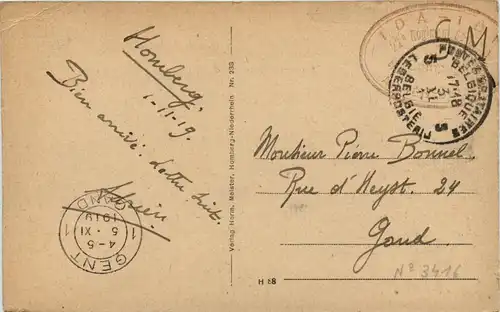 Homberg.
1-11-19.
Bien arrivé. Lettre suit.
GENT
1 4-5 1
5 · XI
1919
GAND
Verlag Herm. Meister, Homberg-Niederrhein Nr. 239
H 88
C M
POSTES MILITAIRES
BELGIQUE
5 17-18 5
3
XI
BELGIË
LEGERPOSTERIJ
Monsieur Pierre Bonnel
Rue d'Heyst, 24
Gand.
Nº 3416